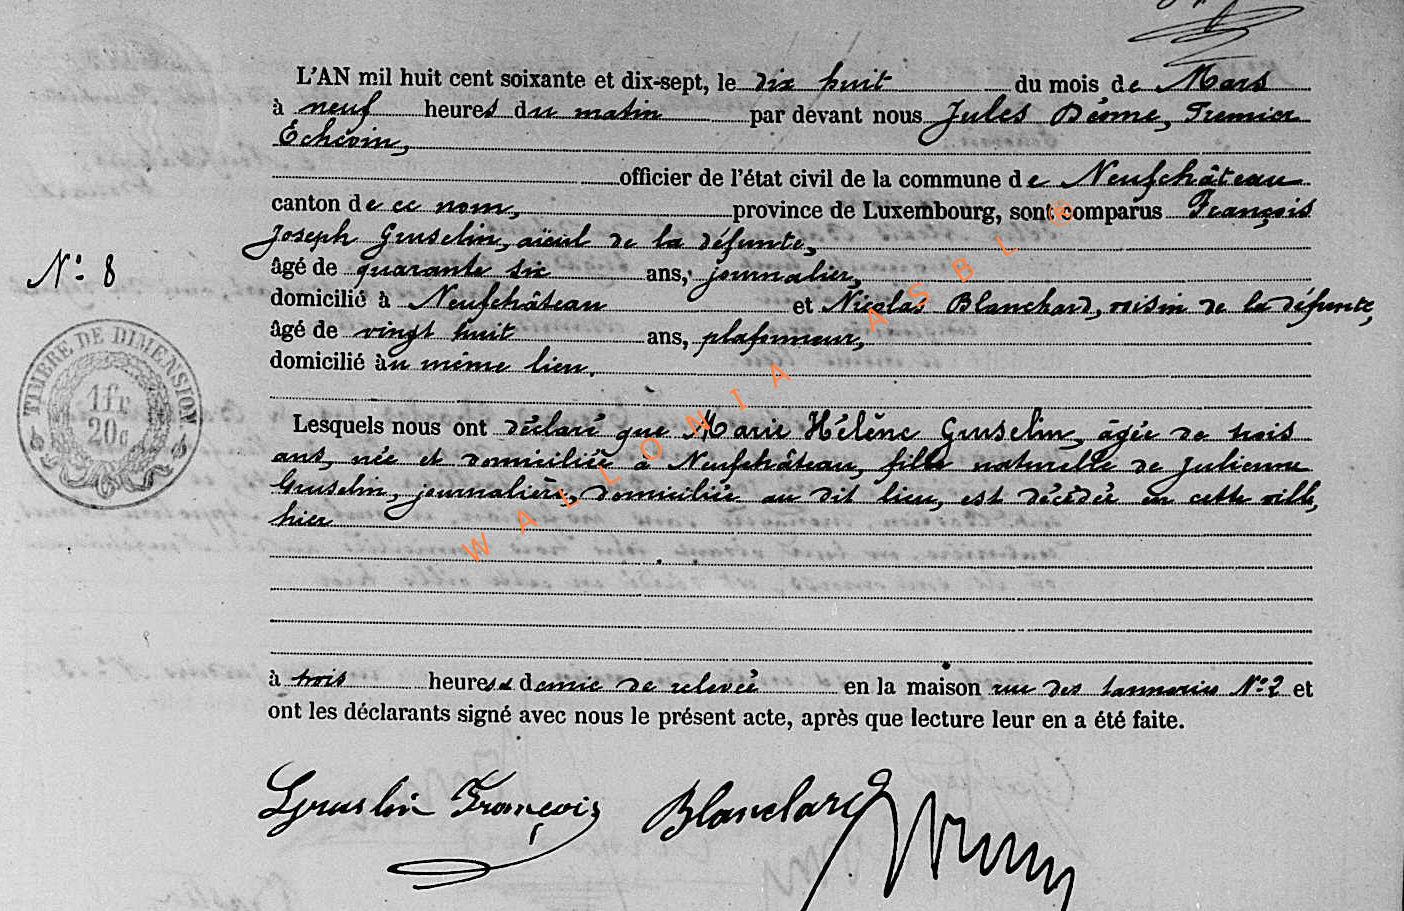 L'AN mil huit cent soixante et dix-sept, le dix huit du mois de Mars
à neuf heures du matin par devant nous Jules Déome, Premier
Echevin,
officier de l'état civil de la commune de Neufchâteau
canton de ce nom, province de Luxembourg, sont comparus François
Joseph Gruselin, aïeul de la défunte,
N° 8
âgé de quarante six ans, journalier,
domicilié à Neufchâteau et Nicolas Blanchard, voisin de la défunte,
âgé de vingt huit ans, plafonneur,
domicilié au même lieu.
TIMBRE DE DIMENSION
1fr
20c
Lesquels nous ont déclaré que Marie Hélène Gruselin, âgée de trois
ans, née et domiciliée à Neufchâteau, fille naturelle de Julienne
Gruselin, journalière, domiciliée au dit lieu, est décédée en cette ville,
hier
à trois heures & demie de relevée en la maison rue des tanneries N° 2 et
ont les déclarants signé avec nous le présent acte, après que lecture leur en a été faite.
Gruslin François Blanchard
WALLONIA ASBL ©